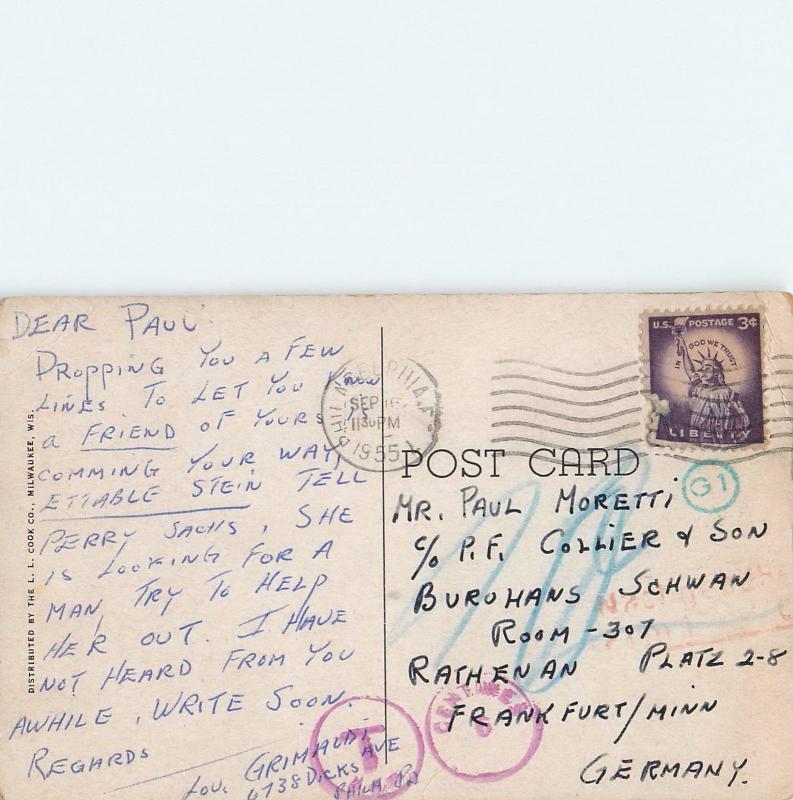 DEAR PAUL
DROPPING YOU A FEW
LINES TO LET YOU KNOW
A FRIEND OF YOURS IS
COMMING YOUR WAY,
ETTABLE STEIN TELL
PERRY SACHS, SHE
IS LOOKING FOR A
MAN, TRY TO HELP
HER OUT. I HAVE
NOT HEARD FROM YOU
AWHILE, WRITE SOON.
REGARDS
LOU. GRIMALDI
6738 DICKS AVE
PHILA PA
DISTRIBUTED BY THE L. L. COOK CO., MILWAUKEE, WIS.
PHILADELPHIA, PA.
SEP 16
1130 PM
1955
U.S. POSTAGE 3¢
IN GOD WE TRUST
LIBERTY
POST CARD
G1
MR. PAUL MORETTI
C/O P.F. COLLIER & SON
BUROHANS SCHWAN
ROOM - 307
RATHENAN PLATZ 2-8
FRANKFURT/MINN
GERMANY.
T
CENTIMES